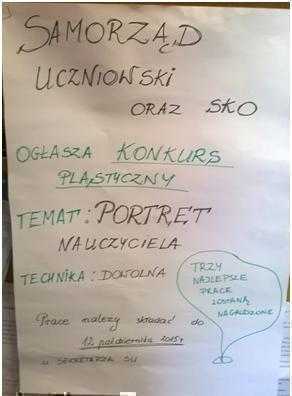 SAMORZĄD
UCZNIOWSKI
ORAZ SKO
OGŁASZA KONKURS
PLASTYCZNY
TEMAT: PORTRET
NAUCZYCIELA
TECHNIKA: DOWOLNA
TRZY
NAJLEPSZE
PRACE
ZOSTANĄ
NAGRODZONE
Prace należy składać do
12 października 2015r
u SEKRETARZA SU